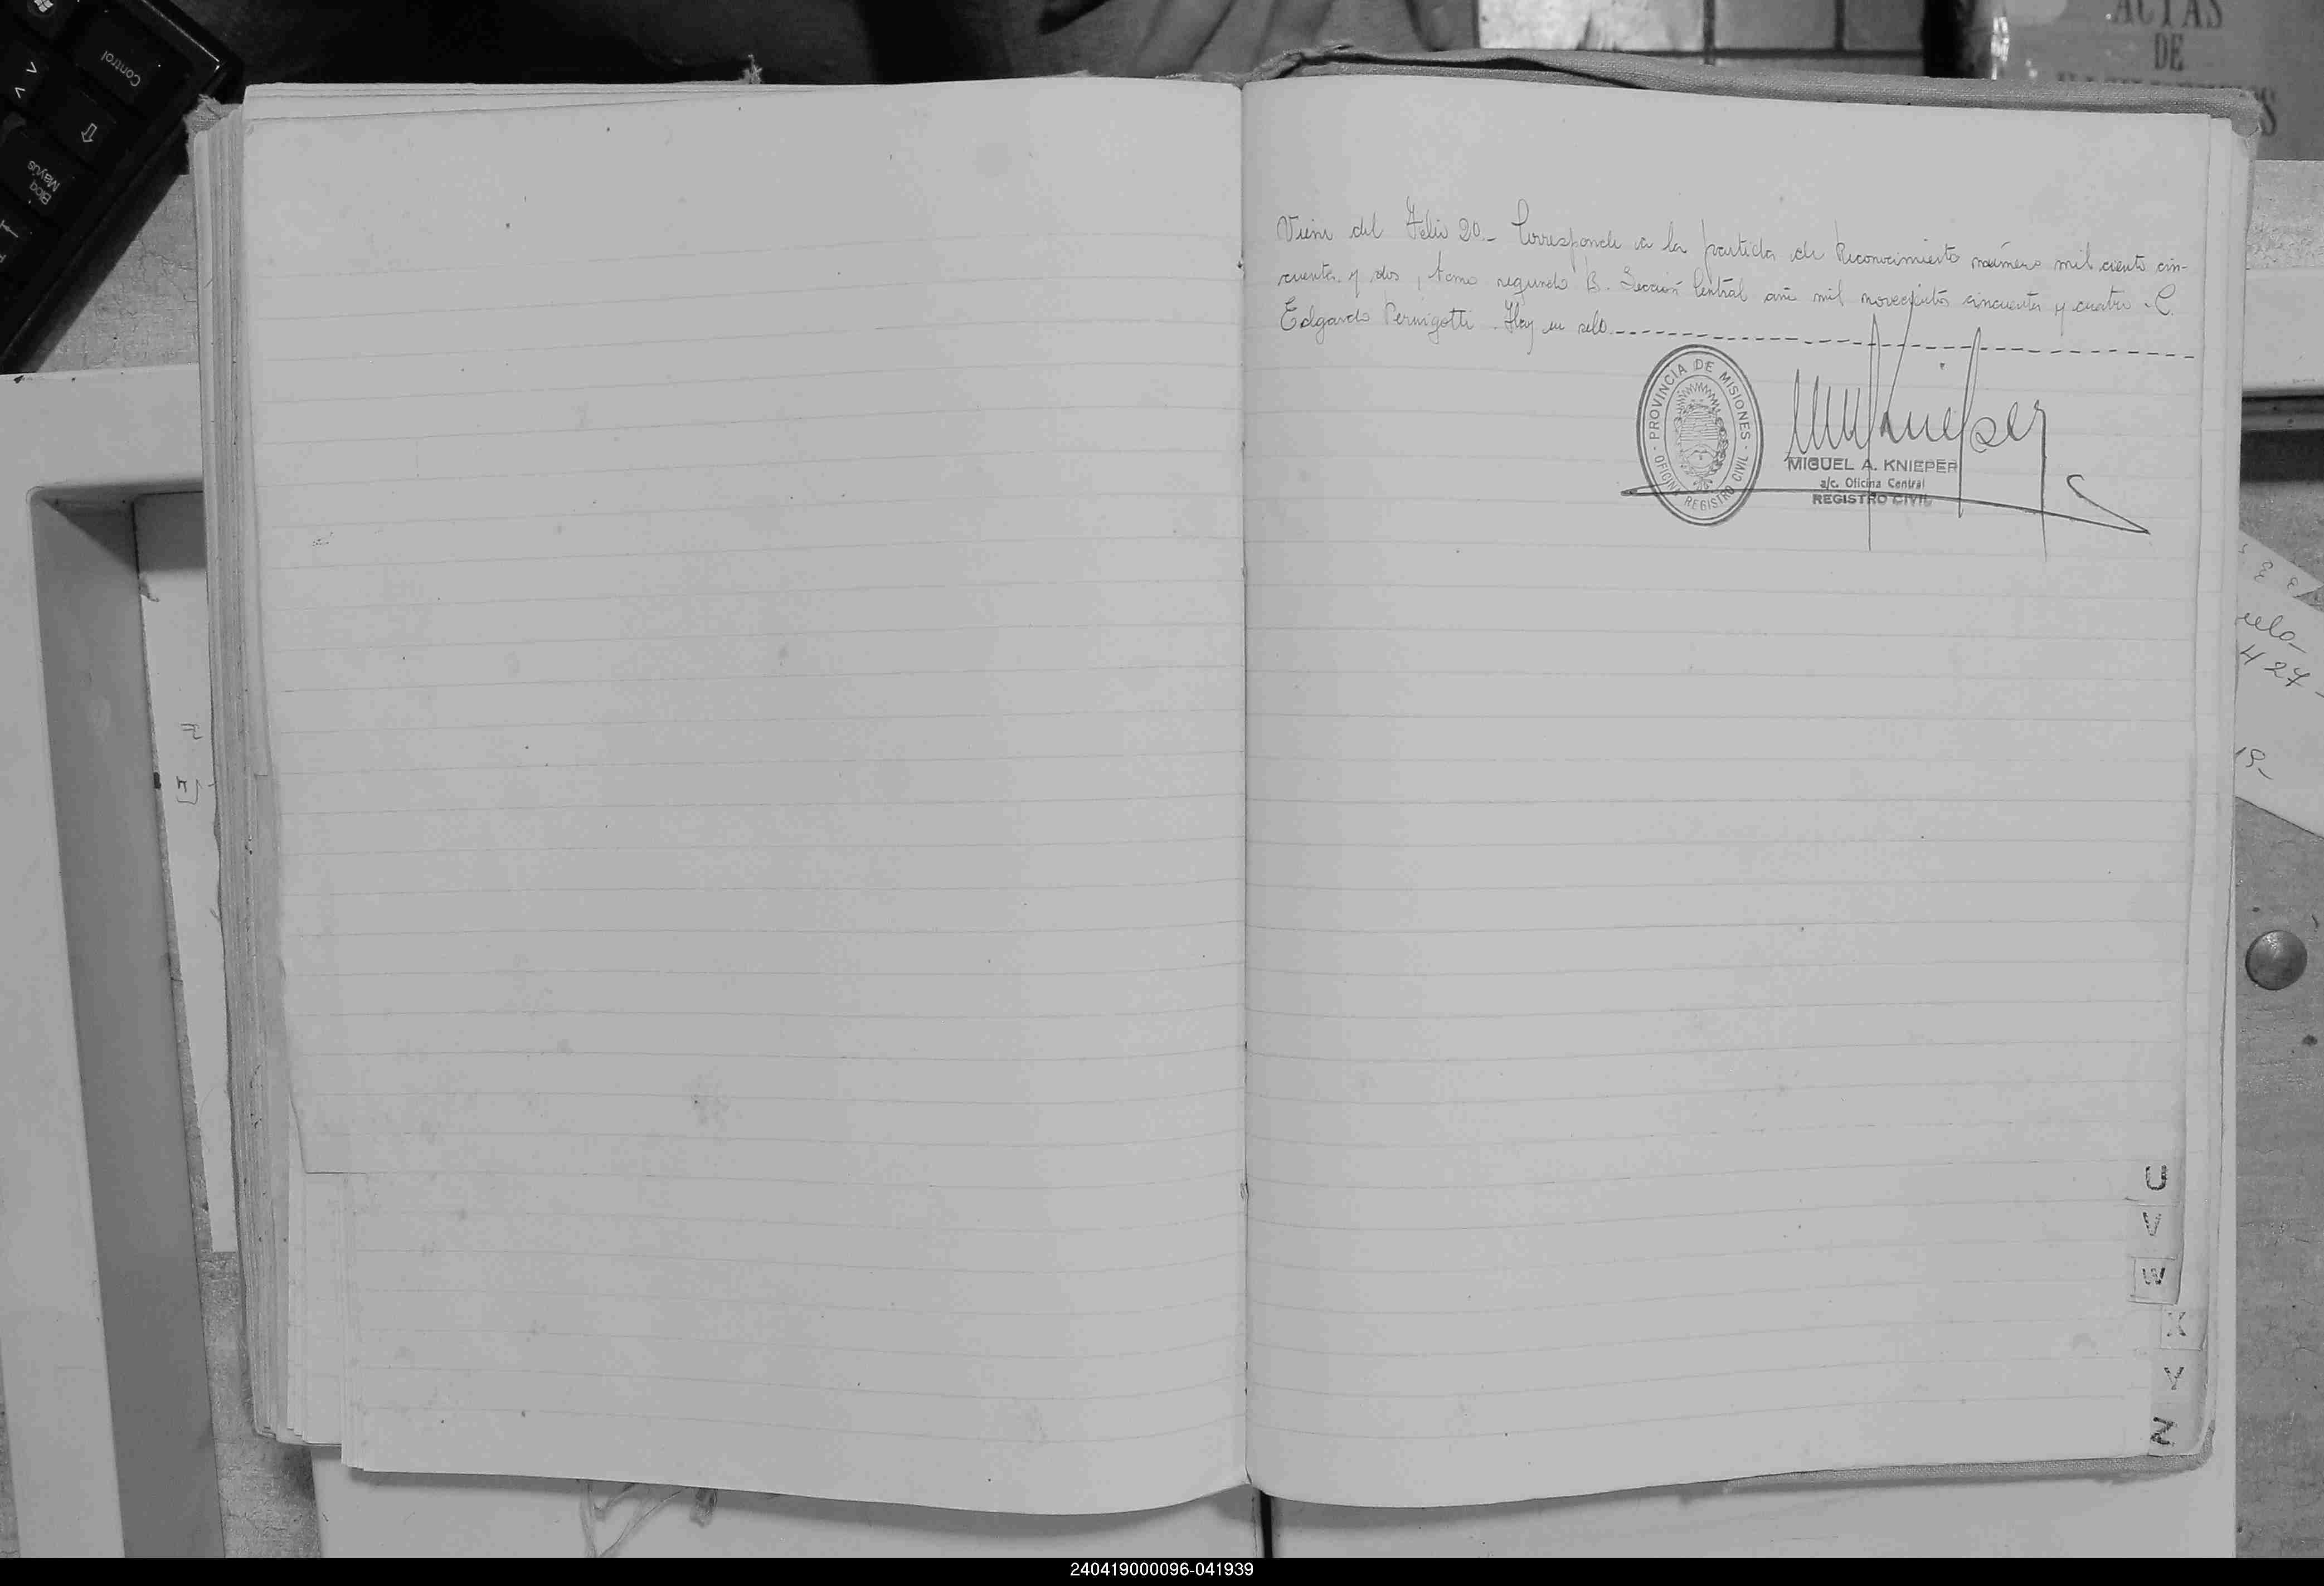 Control
Bloq
Mayús
ACTAS
DE
Viene del Folio 20.- Corresponde a la partida de Reconocimiento número mil ciento cin-
cuenta y dos, tomo segundo B. Sección Central año mil novecientos cincuenta y cuatro.- C.
Edgardo Pernigotti. Hay un sello.
PROVINCIA DE MISIONES
OFICINA REGISTRO CIVIL
MIGUEL A. KNIEPER
a/c. Oficina Central
REGISTRO CIVIL
427-
19-
U
V
W
X
Y
Z
240419000096-041939